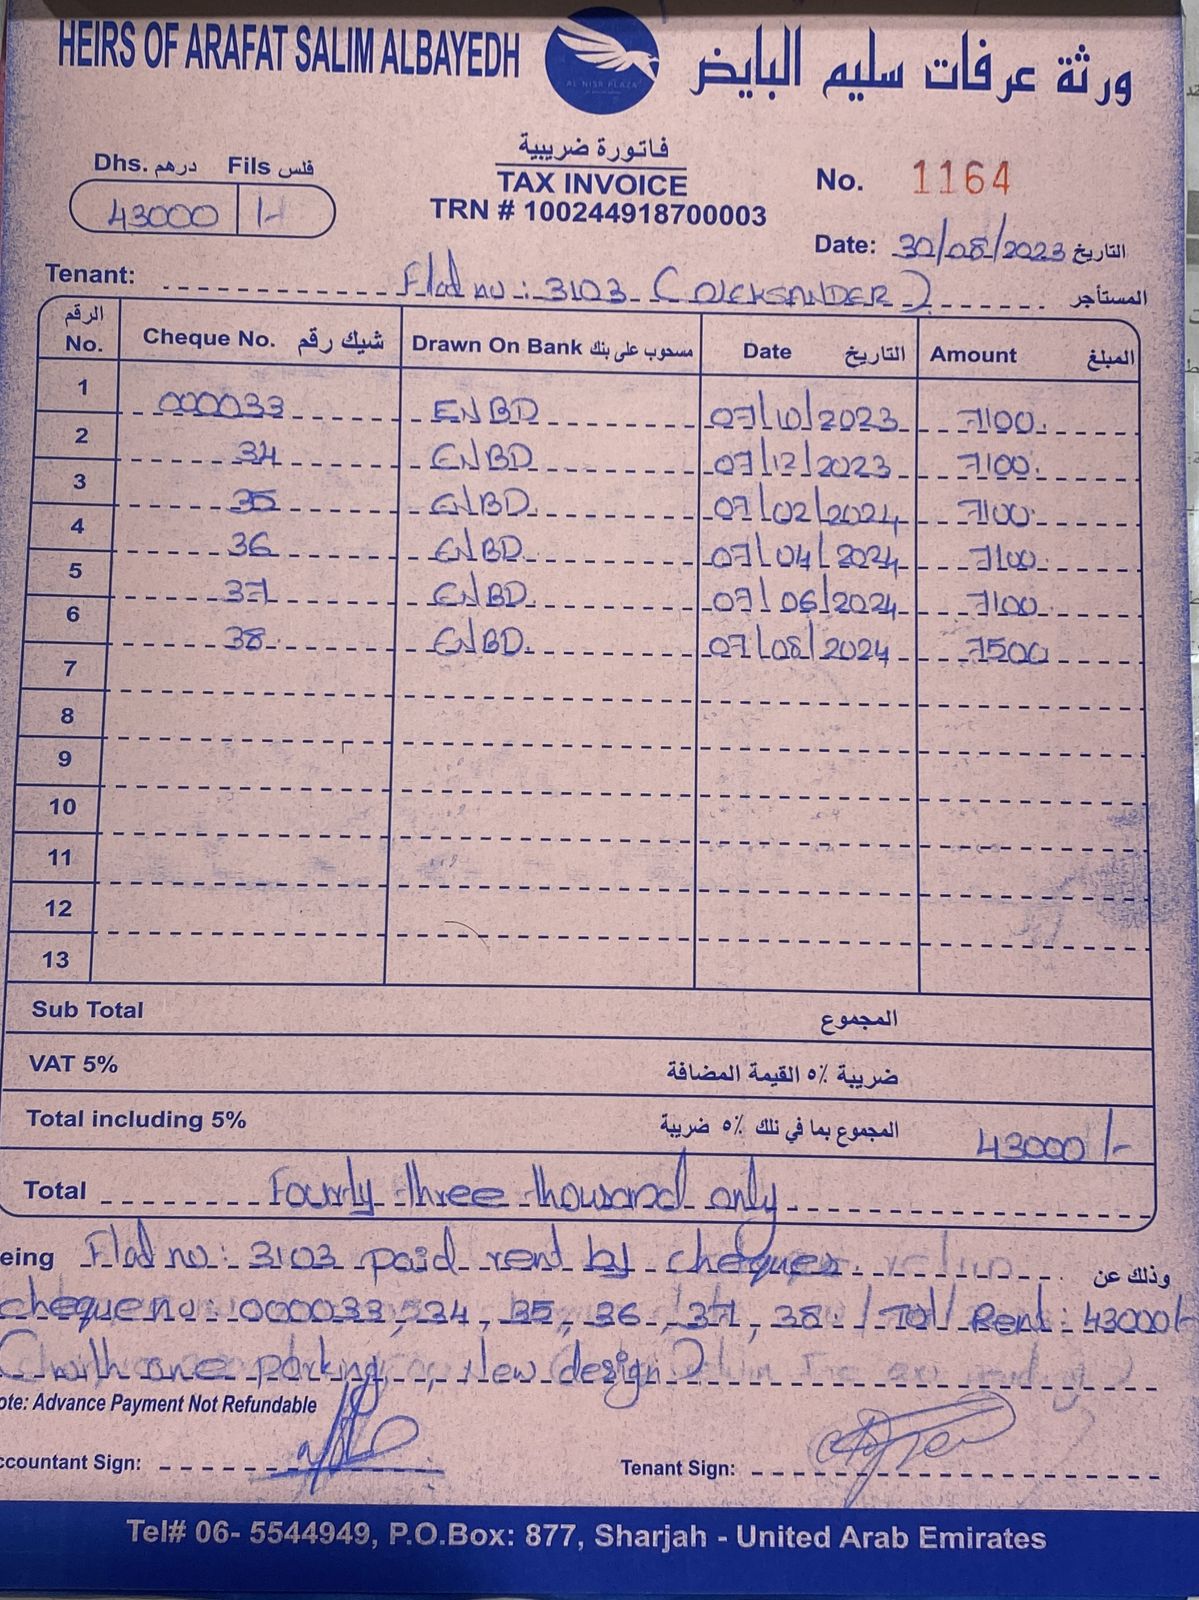 HEIRS OF ARAFAT SALIM ALBAYEDH
AL NISR PLAZA
ورثة عرفات سليم البايض
Dhs. درهم Fils فلس
43000 /-
فاتورة ضريبية
TAX INVOICE
TRN # 100244918700003
No. 1164
Date: 30/08/2023 التاريخ
Tenant: Flat no: 3103 (OLEKSANDER) المستأجر
الرقم No. Cheque No. شيك رقم Drawn On Bank مسحوب على بنك Date التاريخ Amount المبلغ
1 000033 ENBD 07/10/2023 7100
2 34 ENBD 07/12/2023 7100
3 35 ENBD 07/02/2024 7100
4 36 ENBD 07/04/2024 7100
5 37 ENBD 07/06/2024 7100
6 38 ENBD 07/08/2024 7500
7
8
9
10
11
12
13
Sub Total المجموع
VAT 5% ضريبة ٥٪ القيمة المضافة
Total including 5% المجموع بما في نلك ٥٪ ضريبة 43000/-
Total Fourty three thousand only
eing Flat no: 3103 paid rent by cheques وذلك عن
cheque no: 000033, 34, 35, 36, 37, 38 / Rent: 43000/-
(with one parking, New design)
ote: Advance Payment Not Refundable
ccountant Sign: Tenant Sign:
Tel# 06- 5544949, P.O.Box: 877, Sharjah - United Arab Emirates